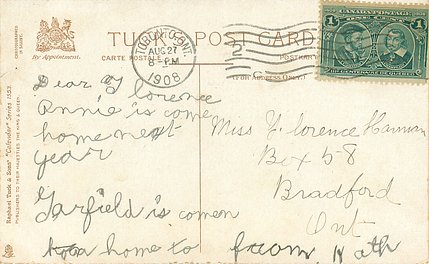 TUCK'S POST CARD
CARTE POSTALE
By Appointment.
(FOR ADDRESS ONLY)
TORONTO, ONT.
AUG 27
8 PM
1908
CANADA POSTAGE
1
1
Raphael Tuck & Sons' "Calendar" Series 1553.
PUBLISHERS TO THEIR MAJESTIES THE KING & QUEEN.
Dear Florence
Annie is come
home next
year
Garfield is comen
home to
from
Miss Florence
Box 58
Bradford
Ont